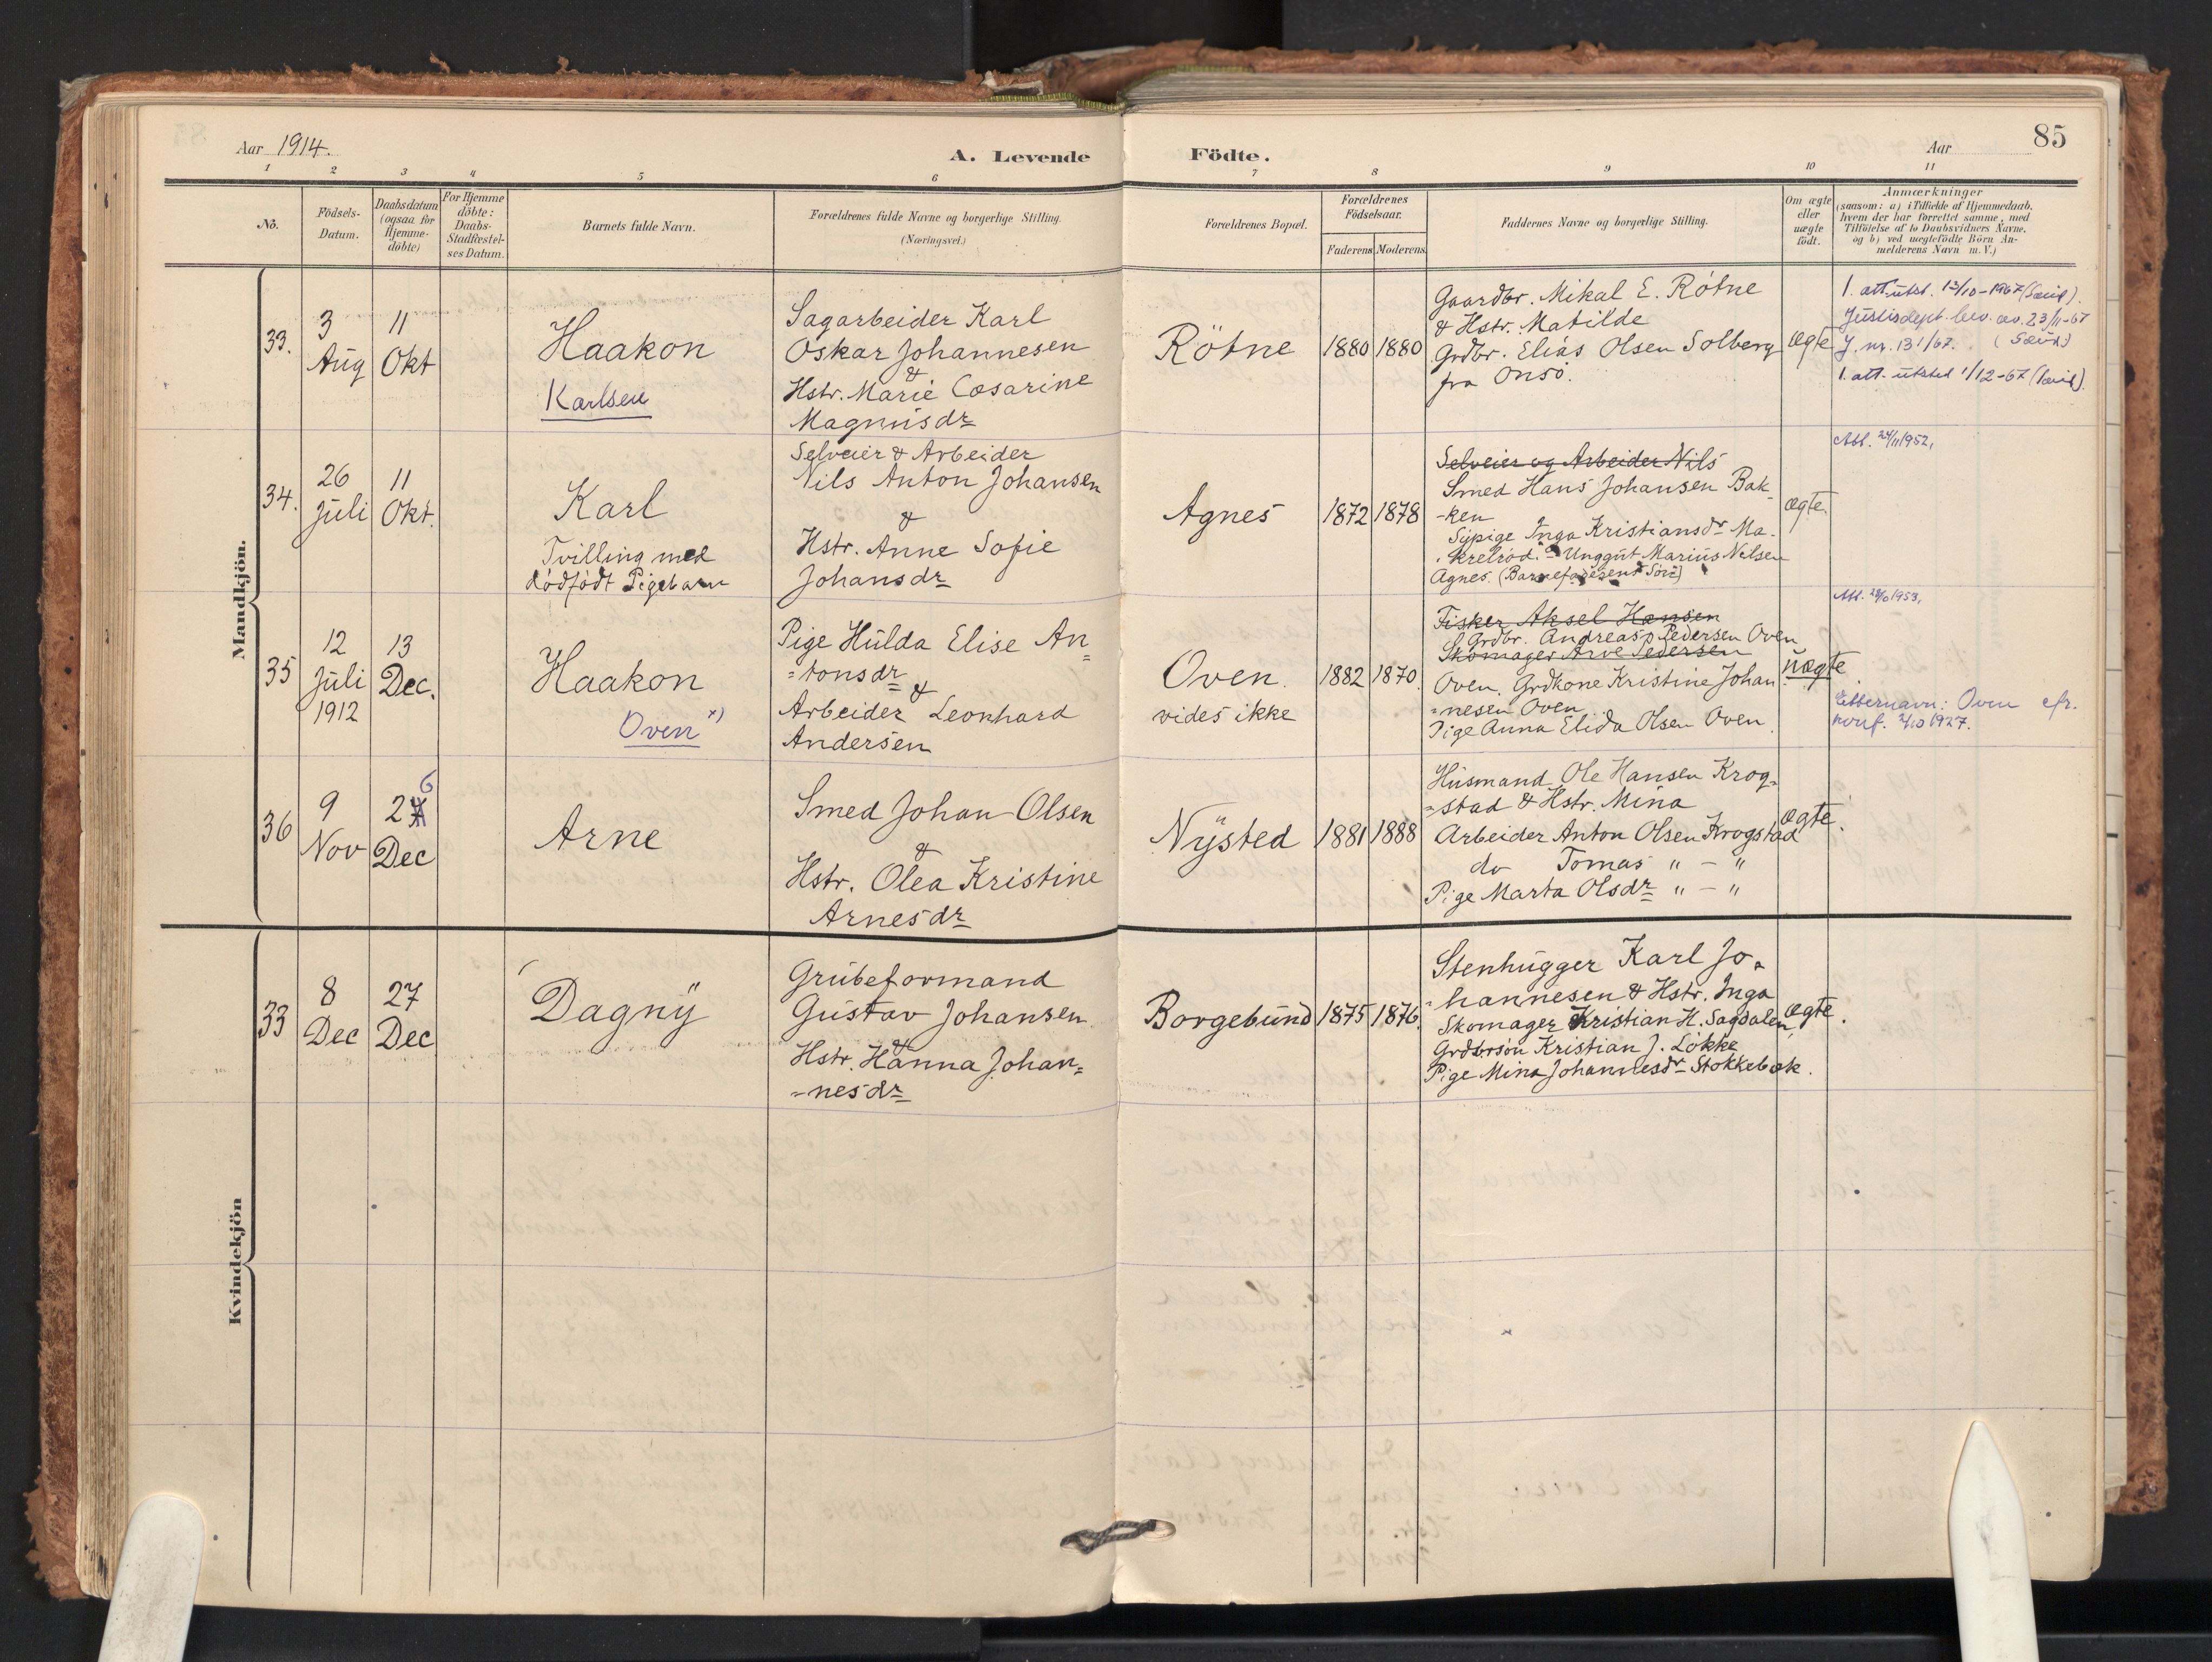 Aar 1914.
A. Levende Födte.
Aar
85
1 2 3 4 5 6 7 8 9 10 11
No.
Födsels-
Datum.
Daabsdatum
(ogsaa for
Hjemme-
döbte)
For Hjemme
döbte:
Daabs-
Stadfæstel-
ses Datum.
Barnets fulde Navn.
Forældrenes fulde Navne og borgerlige Stilling.
(Næringsvei.)
Forældrenes Bopæl.
Forældrenes
Födselsaar.
Faderens Moderens
Faddernes Navne og borgerlige Stilling.
Om ægte
eller
uægte
födt.
Anmærkninger
(saasom: a) i Tilfælde af Hjemmedaab.
hvem der har forrettet samme, med
Tilföielse af to Daabsvidners Navne.
og b) ved uægtefödte Börn An-
melderens Navn m. V.)
Mandkjön.
33.
3
Aug
11
Okt
Haakon
Karlsen
Sagarbeider Karl
Oskar Johannesen
&
Hstr. Marie Cæsarine
Magnusdr
Rötne
1880 1880
Gaardbr. Mikal E. Rötne
& Hstr. Matilde
Grdbr. Elias Olsen Solberg
fra Onsö.
ægte
1. att. utst. 13/10-1967
Justisdept. bev. av 23/11-67
J. nr. 131/67.
1. att. utsted 1/12-67
34.
26
Juli
11
Okt.
Karl
Tvilling med
dödfödt Pigebarn
Selveier & Arbeider
Nils Anton Johansen
&
Hstr. Anne Sofie
Johansdr
Agnes
1872 1878
Selveier og Arbeider Nils
Smed Hans Johansen Bak-
-ken
Sypige Inga Kristiansdr Ma-
krelröd. Unggut Marius Nilsen
Agnes.
ægte.
Att. 24/11 1952.
35
12
Juli
1912
13
Dec.
Haakon
Oven x)
Pige Hulda Elise An=
=tonsdr
&
Arbeider Leonhard
Andersen
Oven.
vides ikke
1882 1870
Fisker Aksel Hansen
Grdbr. Andreas Pedersen Oven
Skomager Arve Pedersen
Oven. Grdkone Kristine Johan
=nesen Oven
Pige Anna Elida Olsen Oven.
uægte
Etternavn: Oven cfr.
36
9
Nov
27 6
Dec
Arne
Smed Johan Olsen
&
Hstr. Olea Kristine
Arnesdr
Nysted
1881 1888
Husmand Ole Hansen Krog=
=stad & Hstr. Mina
Arbeider Anton Olsen Krogstad
do Tomas " - "
Pige Marta Olsdr " - "
ægte.
Kvindekjön
33
8
Dec
27
Dec
Dagny
Grubeformand
Gustav Johansen
&
Hstr. Hanna Johan=
=nesdr
Borgebund
1875 1876.
Stenhugger Karl Jo=
=hannesen & Hstr. Inga
Skomager Kristian H. Sagdalen
Grdbrsön Kristian J. Lökke
Pige Mina Johannesdr Stokkebæk.
ægte.